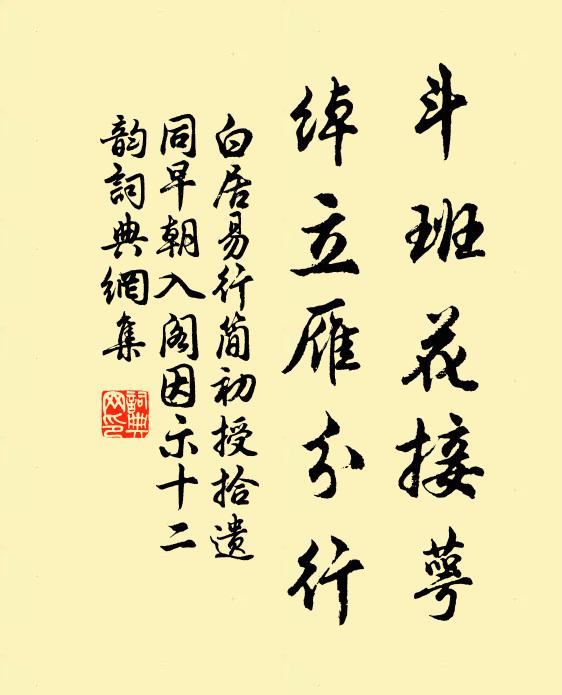 斗班花接萼
绰立雁分行
白居易行简初授拾遗
同早朝入阁因示十二
韵詞典網集
詞典网印